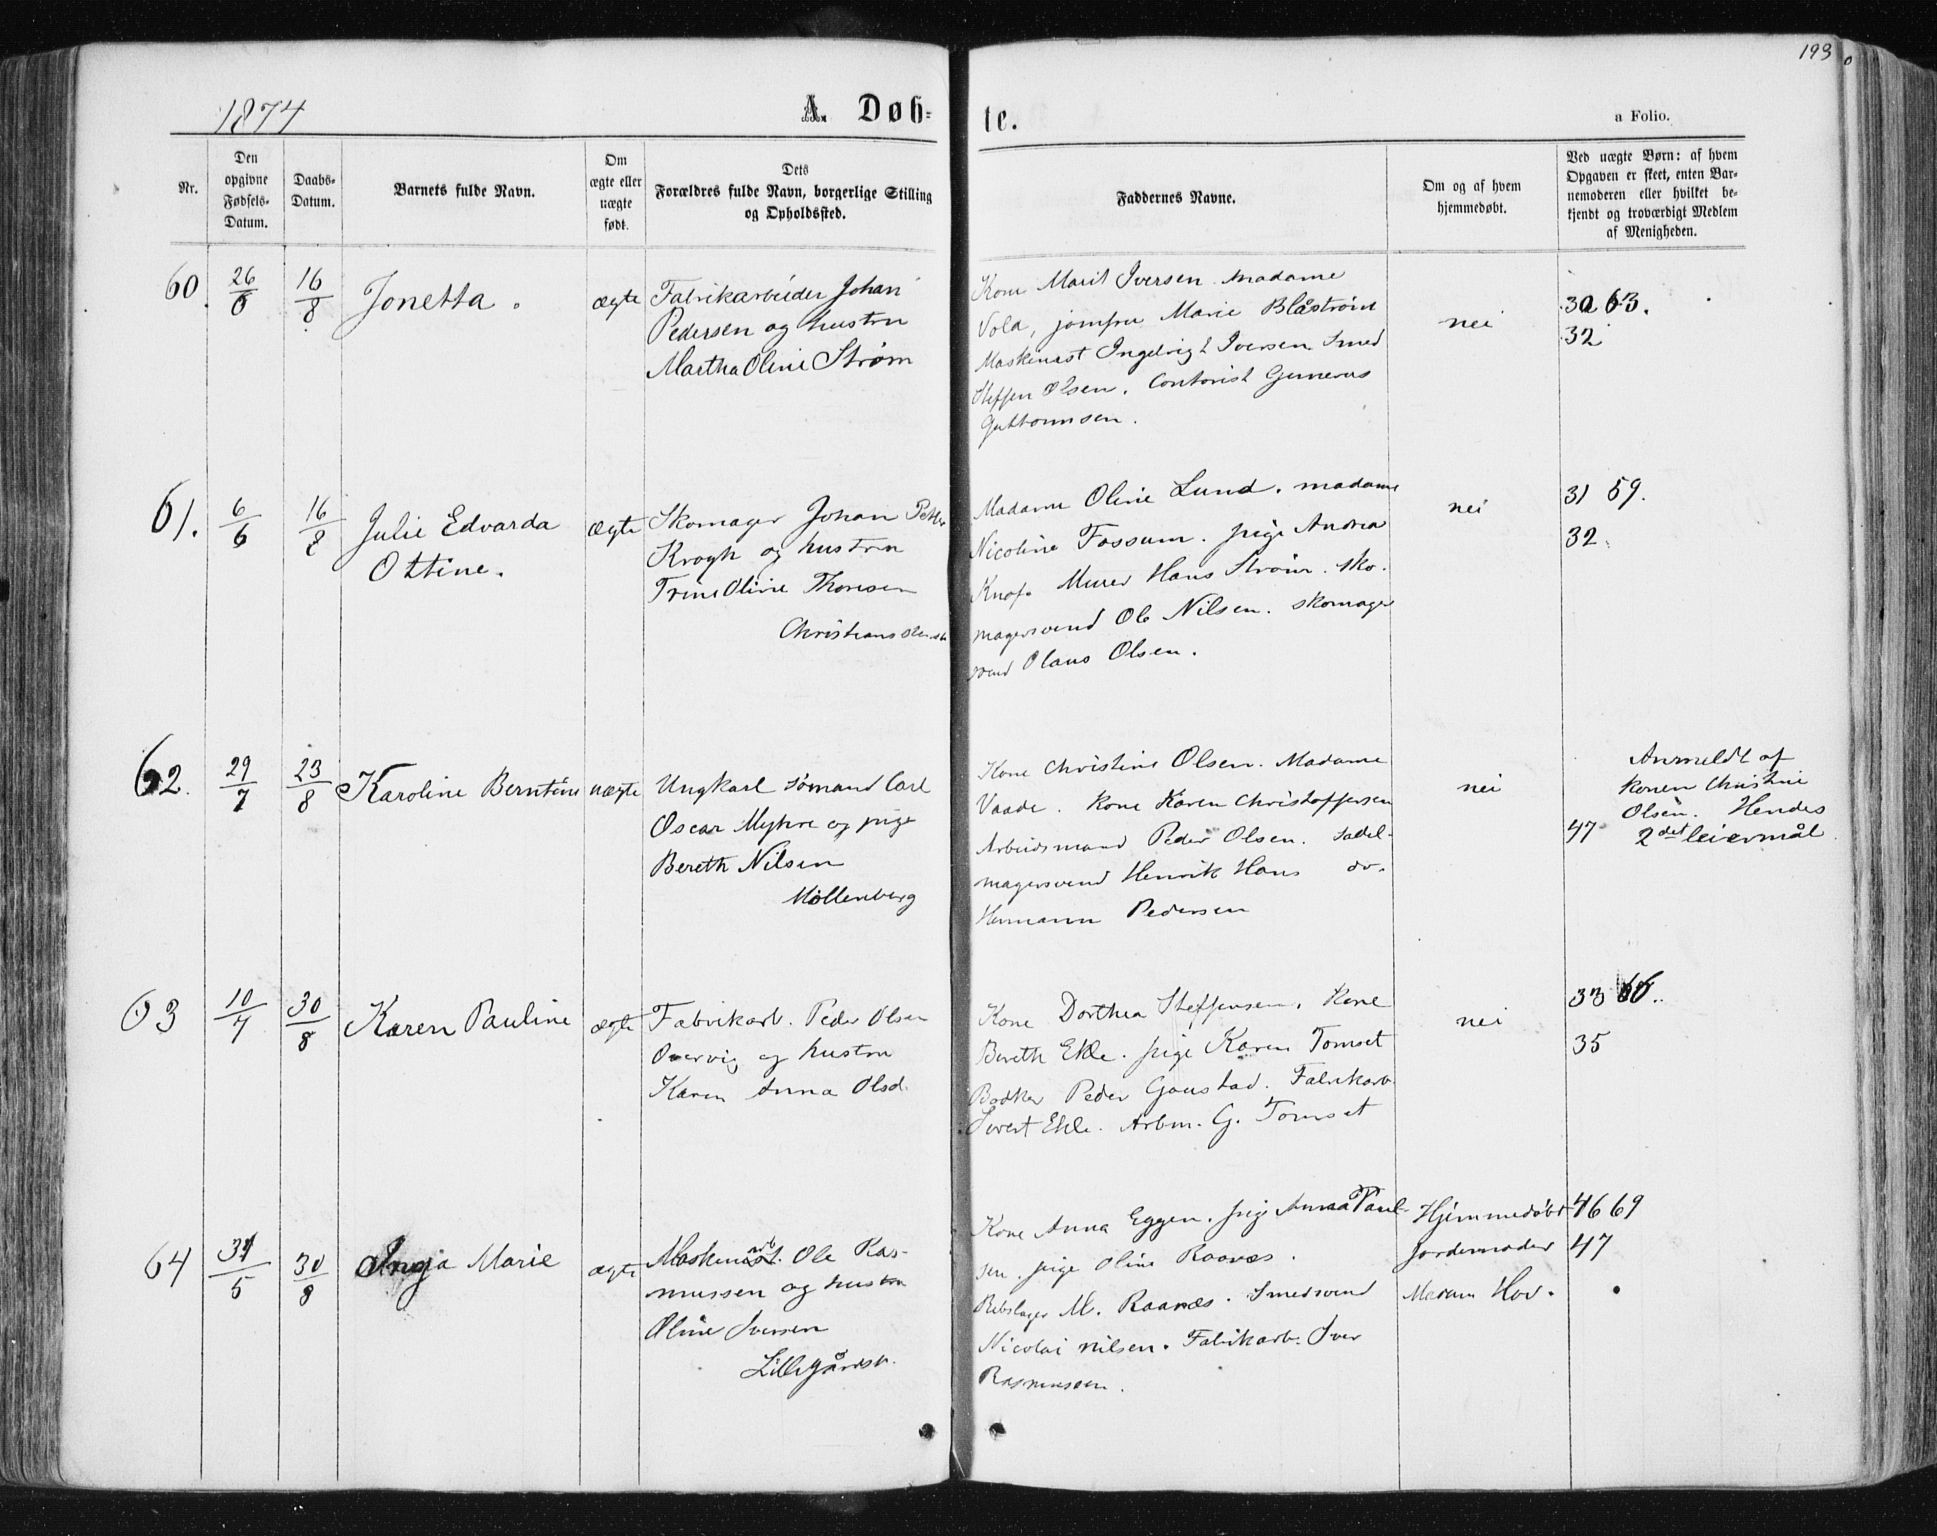 193
1874
A. Døb-
te.
a Folio.
Nr.
Den
opgivne
Fødsels-
Datum.
Daabs-
Datum.
Barnets fulde Navn.
Om
ægte eller
uægte
født.
Dets
Forældres fulde Navn, borgerlige Stilling
og Opholdssted.
Faddernes Navne.
Om og af hvem
hjemmedøbt.
Ved uægte Børn: af hvem
Opgaven er skeet, enten Bar-
nemoderen eller hvilket be-
kjendt og troværdigt Medlem
af Menigheden.
60.
26/6
16/8
Jonetta.
ægte
Fabrikarbeider Johan
Pedersen og hustru
Martha Oline Strøm
Kone Marit Iversen. Madame
Vold, jomfru Marie Blåström
Maskinist Ingebrigt Iversen. Smed
Steffen Olsen. Contorist Gunerus
Guttormsen.
nei
30 63.
32
61.
6/6
16/8
Julie Edvarda
Ottine.
ægte
Skomager Johan Petter
Krogh og hustru
Trine Oline Thoresen
Madame Oline Lund. madame
Nicoline Fossum. pige Andrea
Knof. Murer Hans Strøm. sko-
magersvend Ole Nilsen. skomager
svend Olaus Olsen.
nei
31 59.
32.
62.
29/7
23/8
Karoline Berntine
uægte
Ungkarl sømand Carl
Oscar Myhre og pige
Bereth Nilsen
Møllenberg
Kone Christine Olsen. Madame
Vaade. Kone Karen Christoffersen
Arbeidsmand Peder Olsen. Sadel-
magersvend Henrik Hans do.
Hermann Pedersen
nei
47
Anmeldt af
konen Christine
Olsen. Hendes
2det leiermål
63
10/7
30/8
Karen Pauline
ægte
Fabrikarb. Peder Olsen
Overvig og hustru
Karen Anna Olsd.
Kone Dorthea Steffensen. Kone
Bereth Ekle. pige Karen Tomset
Bødker Peder Goustad. Fabrikarb.
Sivert Ekle. Arbm. G. Tomset
nei
33 66.
35
64
31/5
30/8
Inga Marie
ægte
Maskinarb. Ole Ras-
mussen og hustru
Oline Iversen
Lillegårdsb.
Kone Anna Eggen. pige Anna Paul-
sen. pige Oline Raanæs.
Rebslager M. Raanæs. Smedsvend
Nicolai Nilsen. Fabrikarb. Iver
Rasmussen.
Hjemmedøbt
Jordemoder
Madam Hov.
46 69
47